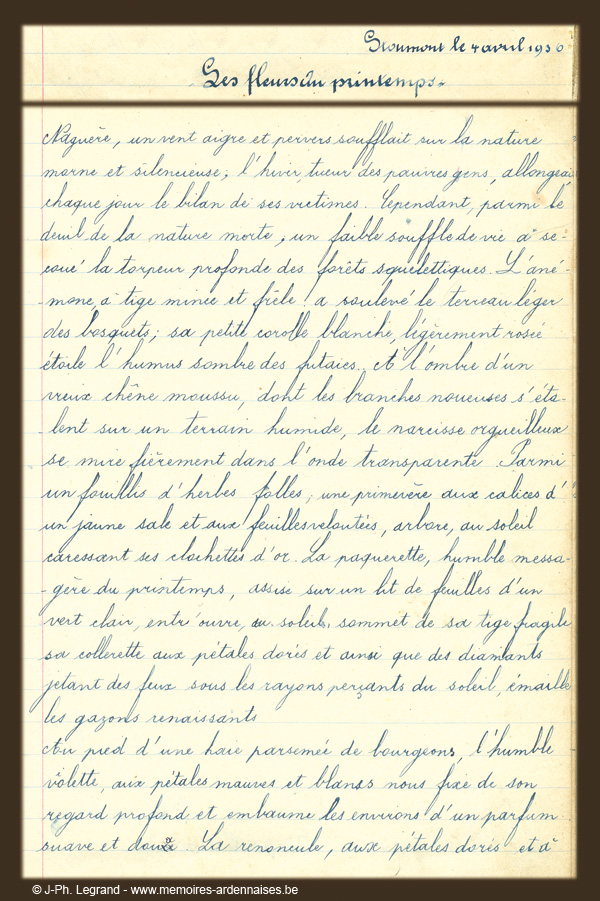 Stoumont le 4 avril 1930
Les fleurs du printemps.
Naguère, un vent aigre et pervers soufflait sur la nature
morne et silencieuse; l'hiver, tueur des pauvres gens, allongeait
chaque jour le bilan de ses victimes. Cependant, parmi le
deuil de la nature morte, un faible souffle de vie a se-
coué la torpeur profonde des forêts squelettiques. L'ané-
mone, à tige mince et frêle a soulevé le terreau léger
des bosquets; sa petite corolle blanche, légèrement rosée
étoile l'humus sombre des futaies. A l'ombre d'un
vieux chêne moussu, dont les branches noueuses s'éta-
lent sur un terrain humide, le narcisse orgueilleux
se mire fièrement dans l'onde transparente. Parmi
un fouillis d'herbes folles, une primevère aux calices d'
un jaune sale et aux feuilles veloutées, arbore, au soleil
caressant ses clochettes d'or. La paquerette, humble messa-
-gère du printemps, assise sur un lit de feuilles d'un
vert clair, entr'ouvre, au soleil, sommet de sa tige fragile
sa collerette aux pétales dorés et ainsi que des diamants
jetant des feux sous les rayons perçants du soleil, émaille
les gazons renaissants
Au pied d'une haie parsemée de bourgeons, l'humble
violette, aux pétales mauves et blancs nous fixe de son
regard profond et embaume les environs d'un parfum
suave et doux. La renoncule, aux pétales dorés et à
© J-Ph. Legrand - www.memoires-ardennaises.be